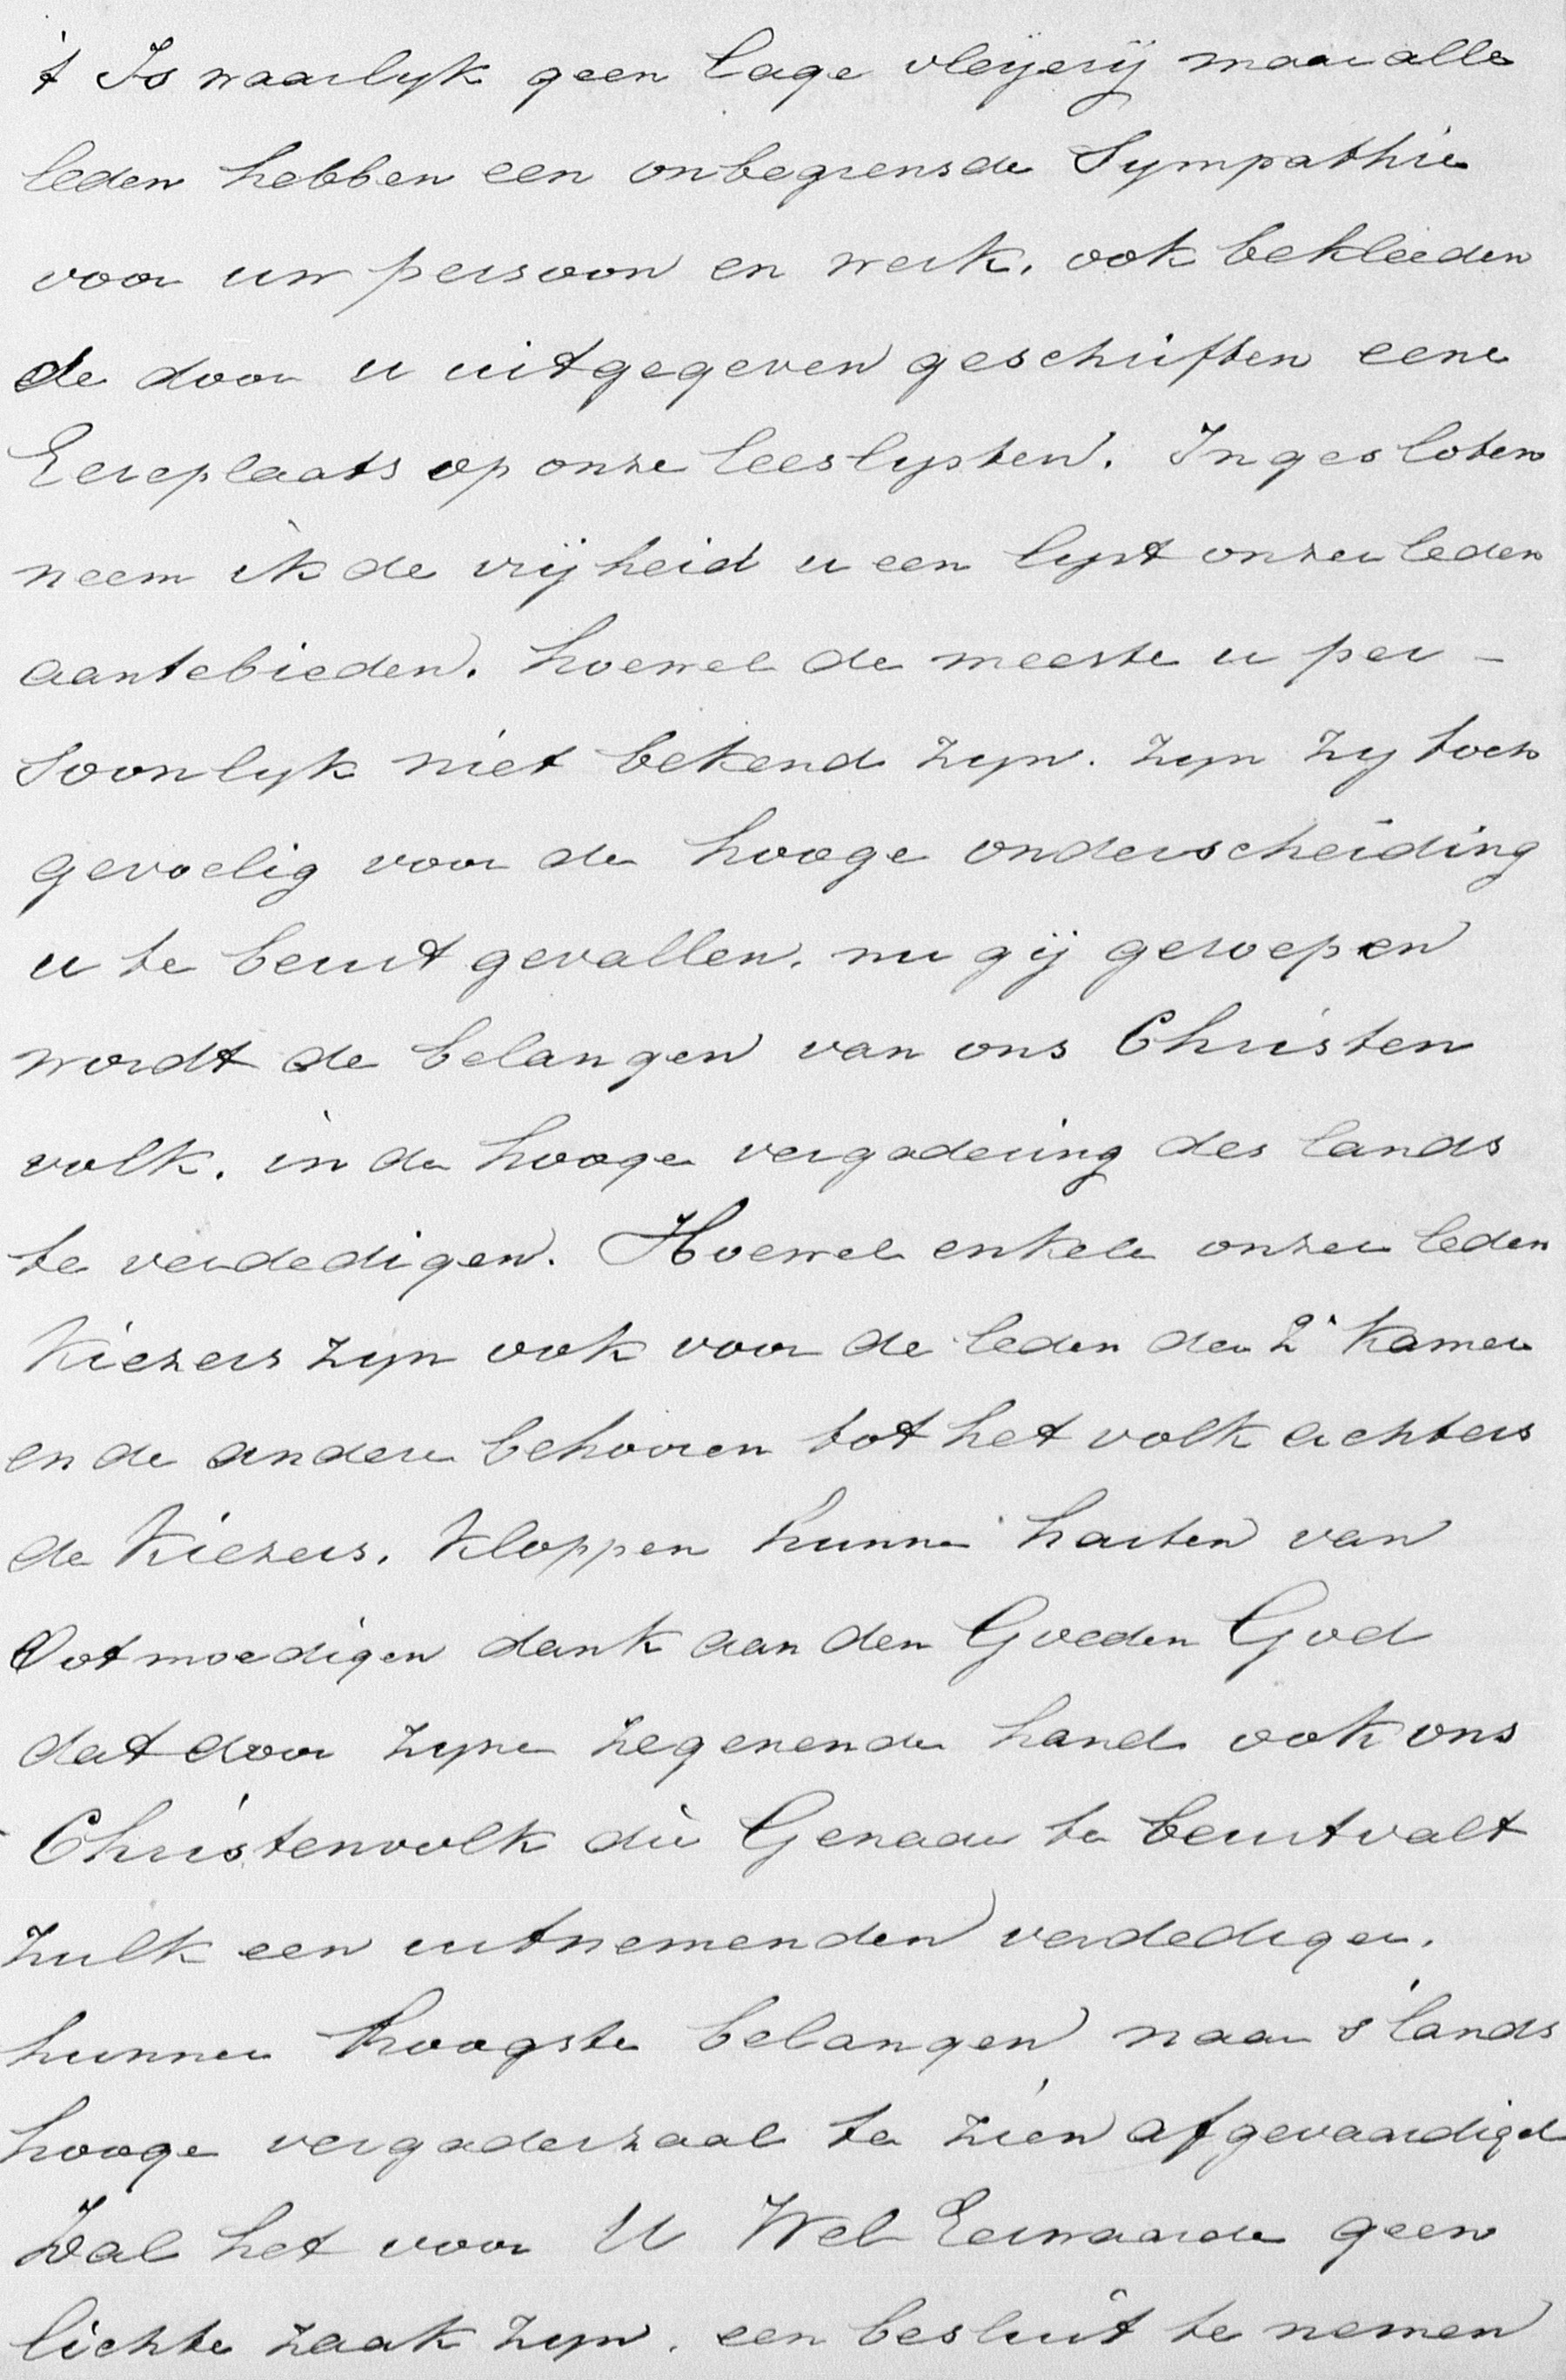 't Is waarlyk geen lage vleijerij maar alle
leden hebben een onbegrensde Sympathie
voor uw persoon en werk. ook bekleeden
de door u uitgegeven geschriften eene
Eereplaats op onze leeslysten. Ingesloten
neem ik de vrijheid u een lyst onzer leden
aantebieden. hoewel de meeste u per-
soonlyk niet bekend zyn. zyn zy toch
gevoelig voor de hooge onderscheiding
u te beurt gevallen. nu gij geroepen
wordt de belangen van ons Christen
volk. in de hooge vergadering des lands
te verdedigen. Hoewel enkele onzer leden
Kiezers zyn ook voor de leden der 2e Kamer
en de andere behooren tot het volk achters
de Kiezers. Kloppen hunne harten van
Ootmoedigen dank aan den Goeden God
dat door zyne zegenende hand ook ons
Christenvolk die Genade te beurt valt
zulk een uitnemenden verdediger.
hunner hoogste belangen naar s'lands
hooge vergaderzaal te zien afgevaardigd
Zal het voor U Wel Eerwaarde geen
lichte zaak zyn. een besluit te nemen